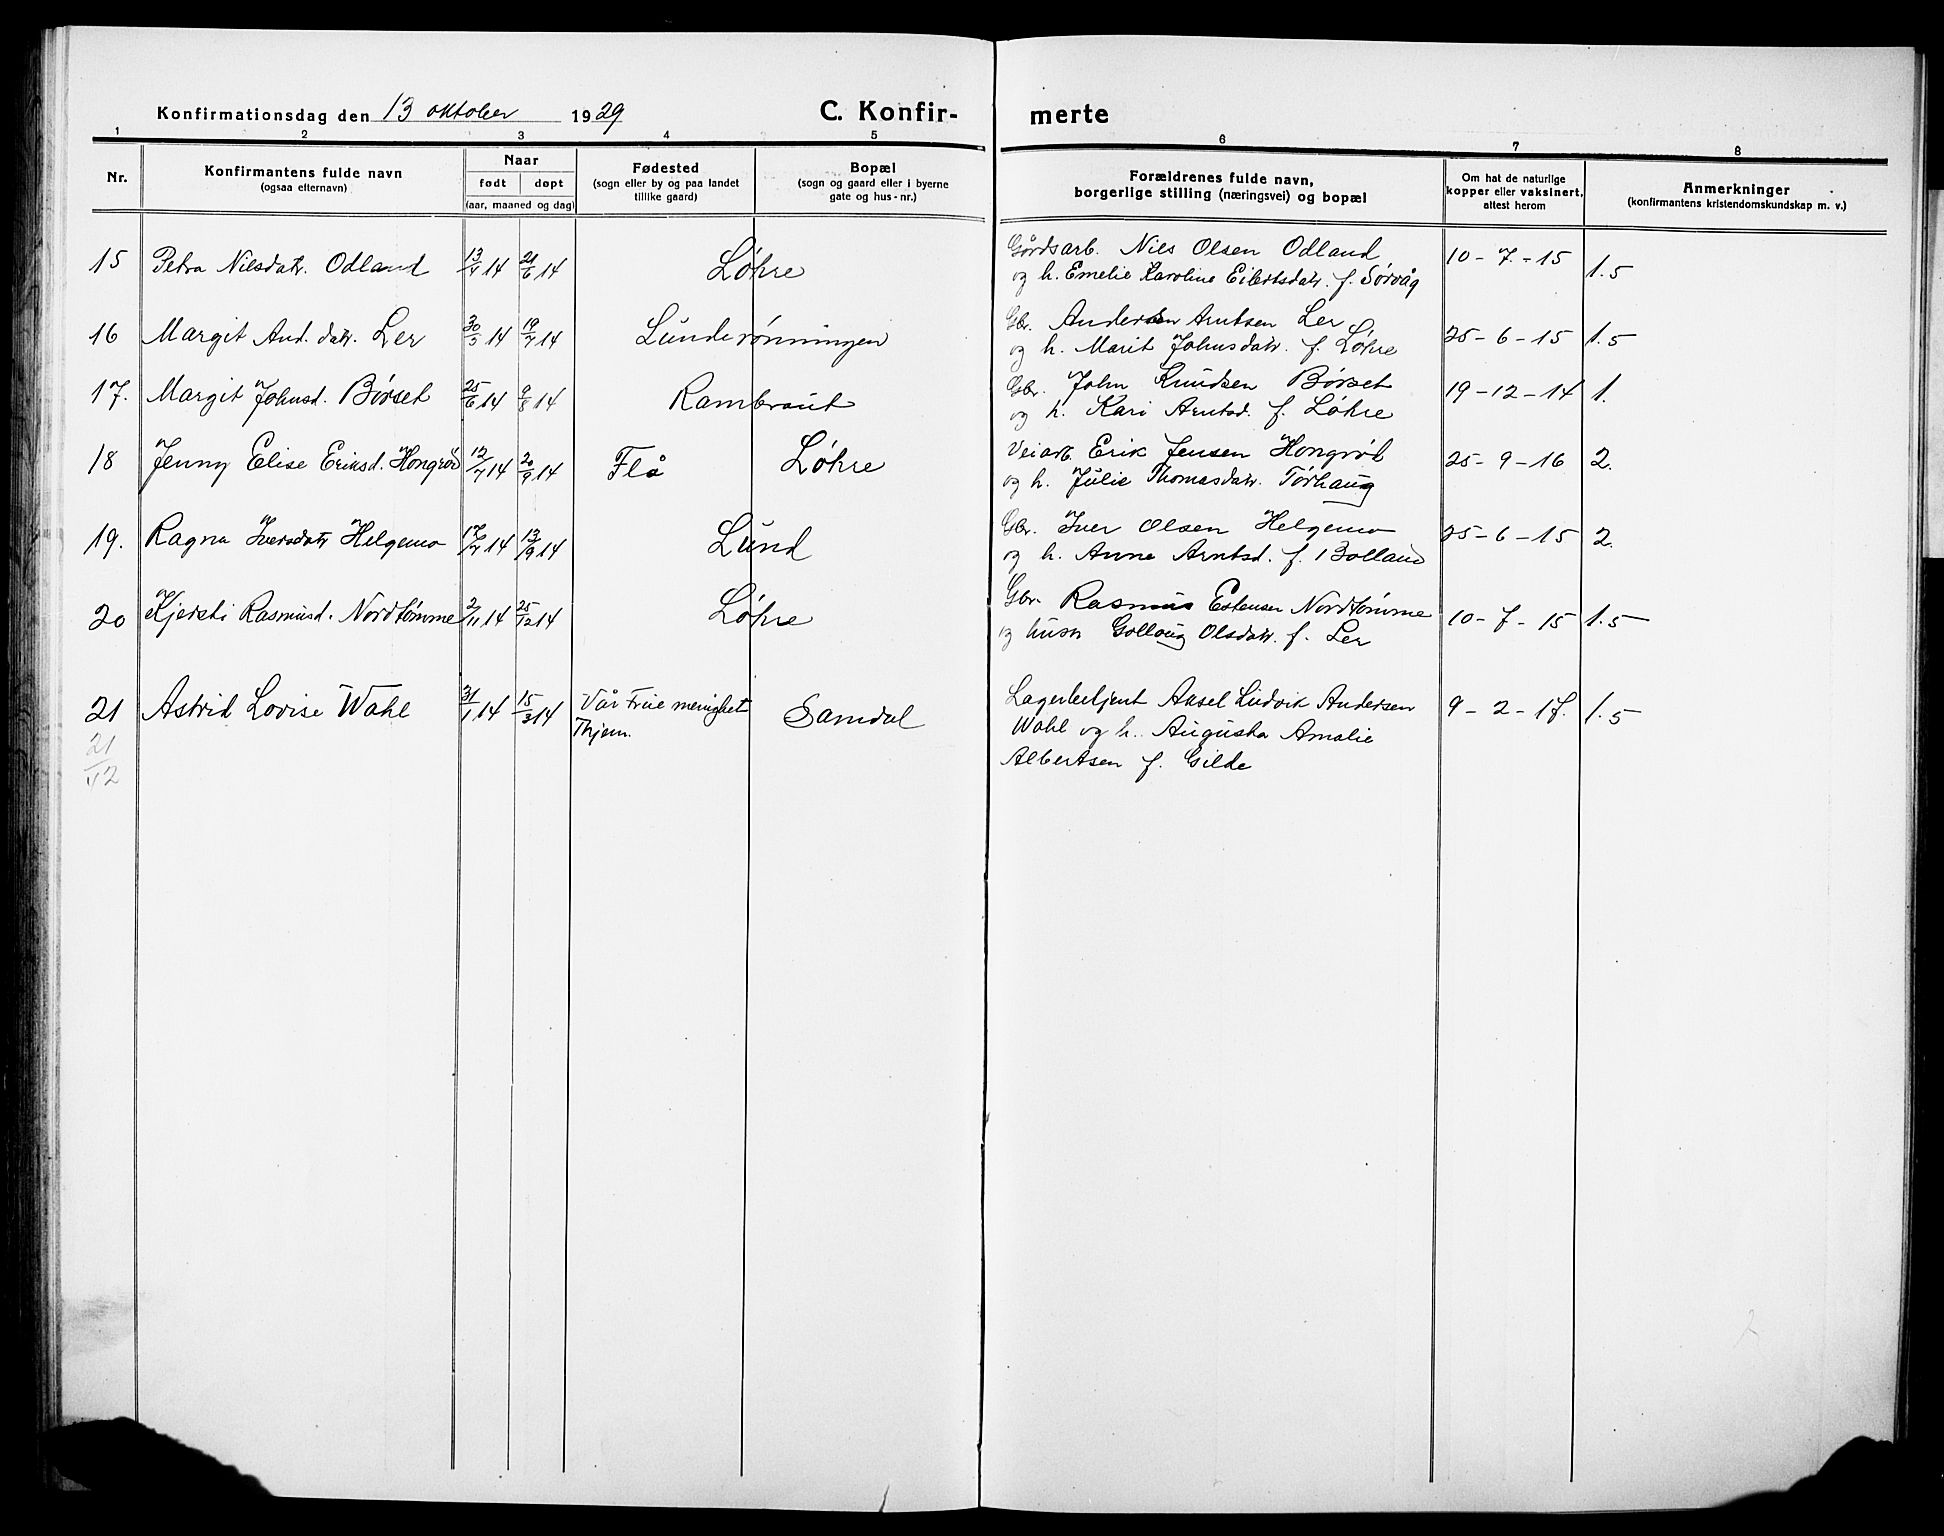 Konfirmationsdag den 13 oktober 1929
C. Konfir-
merte
1 2 3 4 5 6 7 8
Nr.
Konfirmantens fulde navn
(ogsaa efternavn)
Naar
født døpt
(aar, maaned og dag)
Fødested
(sogn eller by og paa landet
tillike gaard)
Bopæl
(sogn og gaard eller i byerne
gate og hus-nr.)
Forældrenes fulde navn,
borgerlige stilling (næringsvei) og bopæl
Om hat de naturlige
kopper eller vaksinert,
attest herom
Anmerkninger
(konfirmantens kristendomskundskap m. v.)
15 Petra Nilsdatr. Odland 13/4 14 21/6 14 Løhre Gårdsarb. Nils Olsen Odland 10-7-15 1.5
og h. Emelie Karoline Eilertsdatr. f. Sørvåg
16 Margit And.datr. Ler 30/5 14 19/7 14 Lunderønningen Gbr. Andersen Arntsen Ler 25-6-15 1.5
og h. Marit Johnsdatr. f. Løhre
17. Margit Johnsd. Børset 25/6 14 9/8 14 Rambraut Gbr. John Knudsen Børset 19-12-14 1.
og h. Kari Arntsd. f. Løhre
18 Jenny Elise Eriksd. Hongrød 12/7 14 20/9 14 Flå Løhre Veiarb. Erik Jensen Hongrød 25-9-16 2.
og h. Julie Thomasdatr. Tørhaug
19. Ragna Iversdatr Helgemo 17/7 14 13/9 14 Lund Gbr. Iver Olsen Helgemo 25-6-15 2.
og h. Anne Arntsd. f. Bolland
20 Kjersti Rasmusd. Nordtømme 2/11 14 25/12 14 Løhre Gbr. Rasmus Estensen Nordtømme 10-7-15 1.5
og husr Gollaug Olsdatr. f. Ler
21 Astrid Lovise Wahl 31/1 14 15/3 14 Vår Frue menighet Samdal Lagerbetjent Aksel Ludvik Andersen 9-2-17. 1.5
Thjem. Wahl og h. Augusta Amalie
Albertsen f. Gilde
21
42